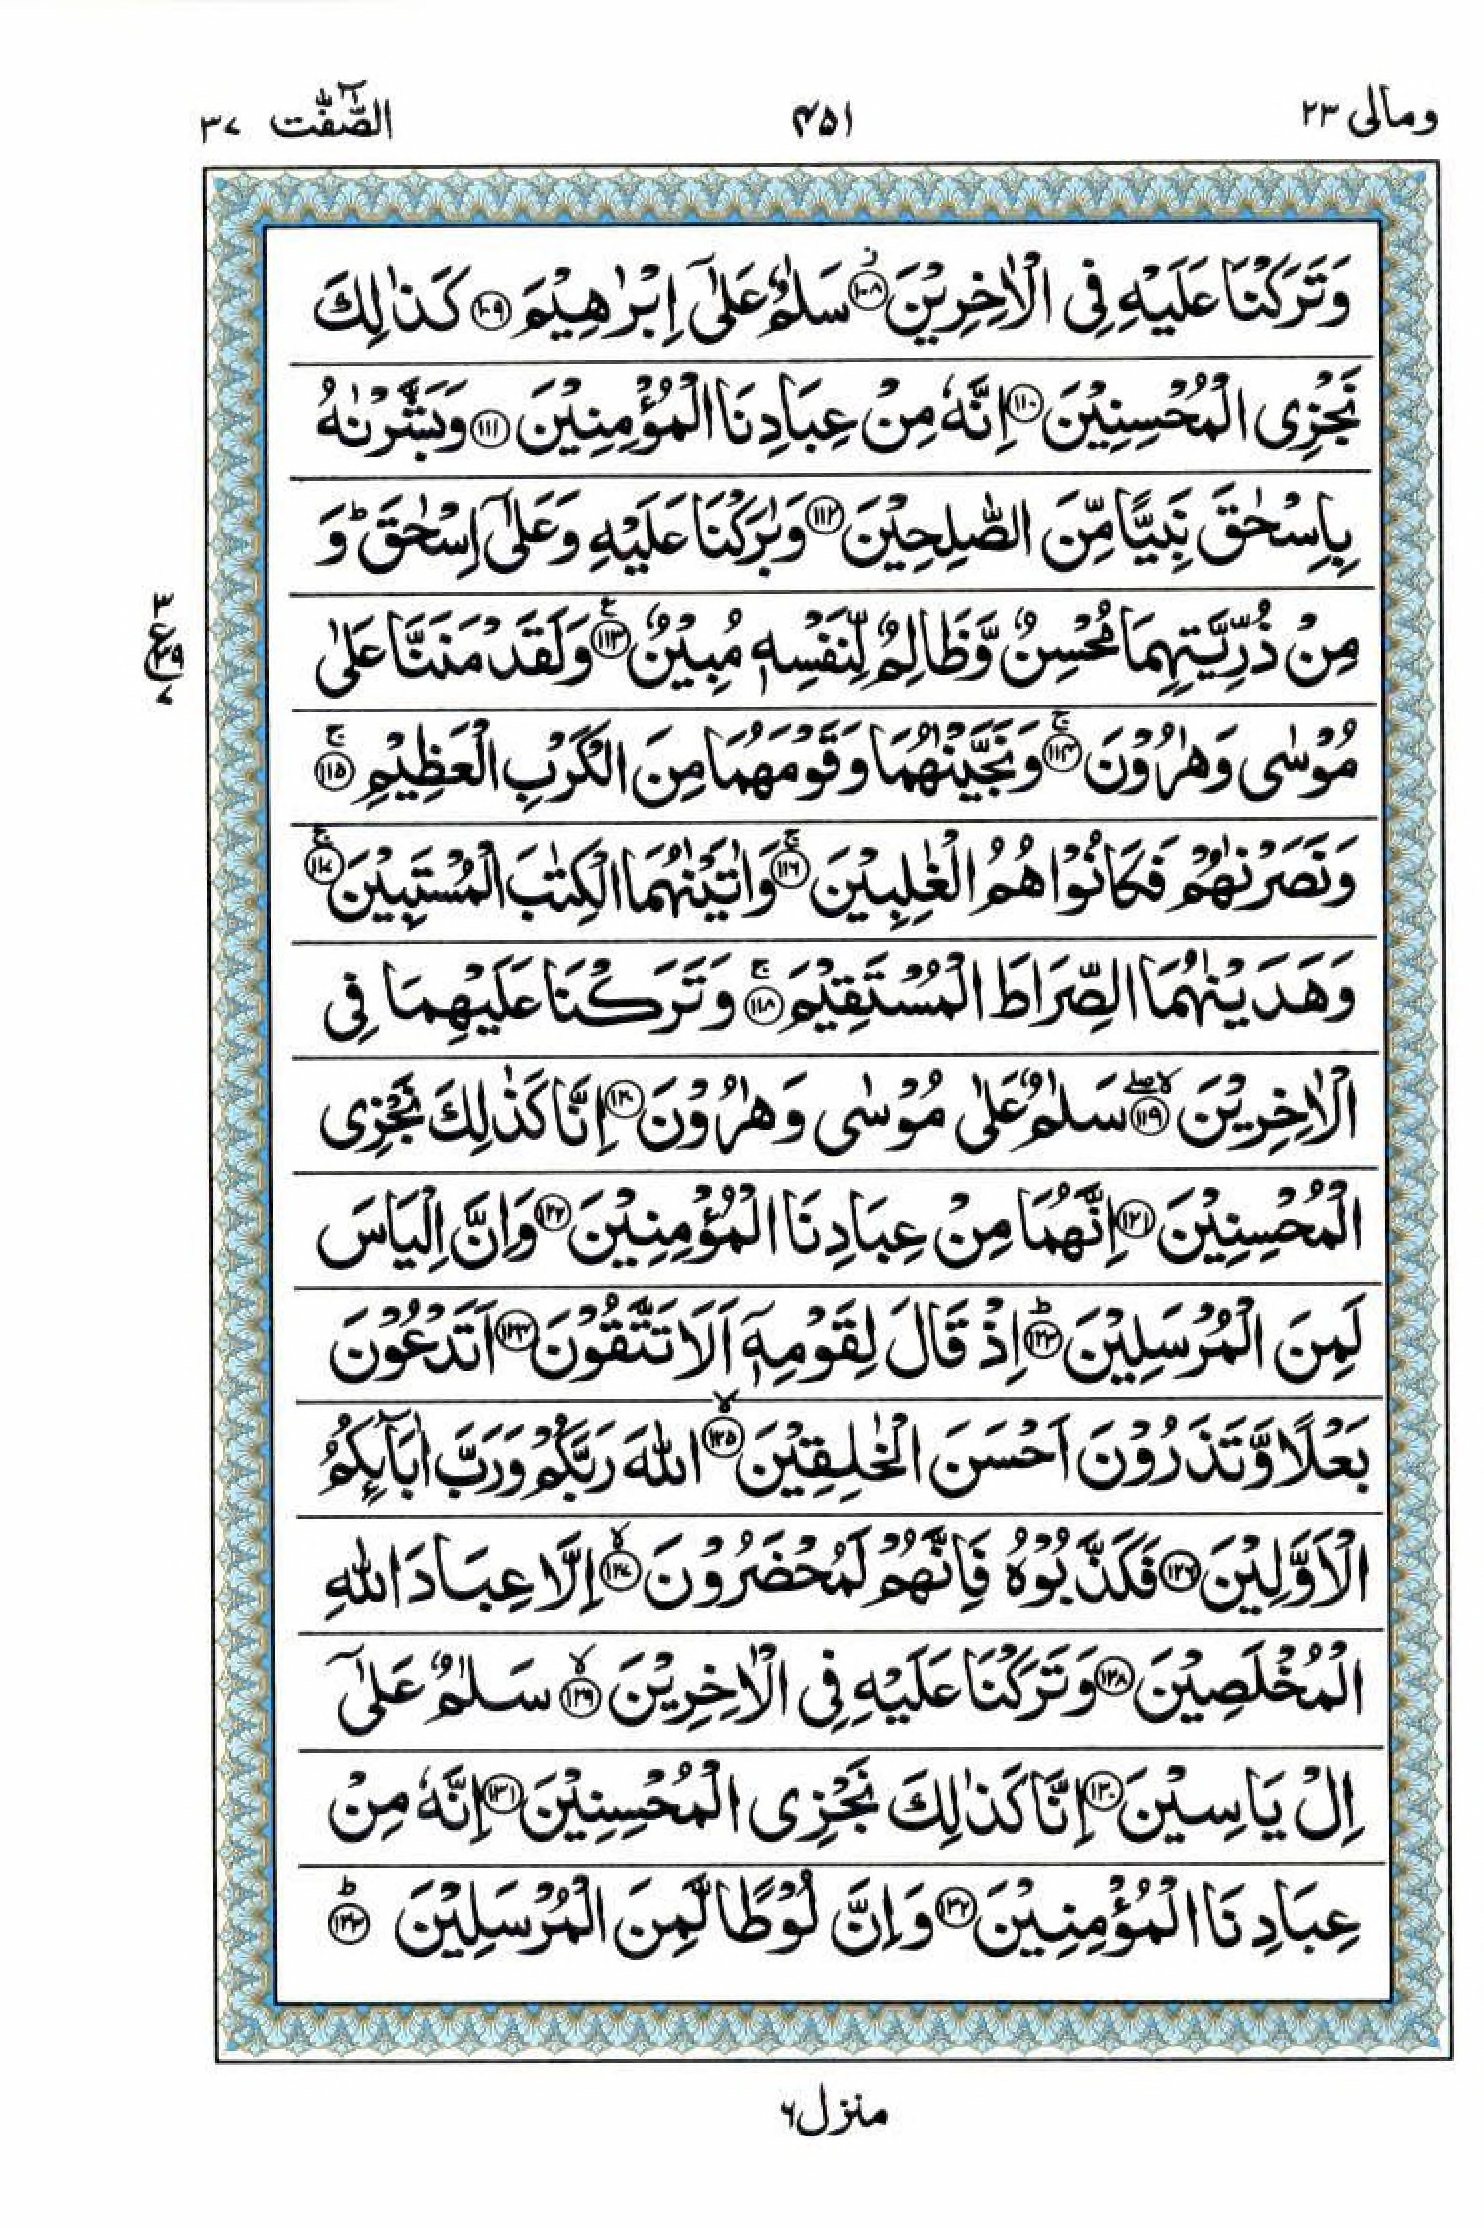 ومالی ۲۳
۴۵۱
الصّٰٓفّٰت ۳۷
وَتَرَكْنَا عَلَيْهِ فِى الْاٰخِرِيْنَ ۖ‏﴿۱۰۸﴾ سَلٰمٌ عَلٰٓى اِبْرٰهِيْمَ ﴿۱۰۹﴾ كَذٰلِكَ
نَجْزِى الْمُحْسِنِيْنَ ﴿۱۱۰﴾ اِنَّهٗ مِنْ عِبَادِنَا الْمُؤْمِنِيْنَ ﴿۱۱۱﴾ وَبَشَّرْنٰهُ
بِاِسْحٰقَ نَبِيًّا مِّنَ الصّٰلِحِيْنَ ﴿۱۱۲﴾ وَبٰرَكْنَا عَلَيْهِ وَعَلٰٓى اِسْحٰقَ ؕ وَ
مِنْ ذُرِّيَّتِهِمَا مُحْسِنٌ وَّظَالِمٌ لِّنَفْسِهٖ مُبِيْنٌ ﴿۱۱۳﴾ وَلَقَدْ مَنَنَّا عَلٰى
مُوْسٰى وَهٰرُوْنَ ۚ‏﴿۱۱۴﴾ وَنَجَّيْنٰهُمَا وَقَوْمَهُمَا مِنَ الْكَرْبِ الْعَظِيْمِ ۚ‏﴿۱۱۵﴾
وَنَصَرْنٰهُمْ فَكَانُوْا هُمُ الْغٰلِبِيْنَ ۚ‏﴿۱۱۶﴾ وَاٰتَيْنٰهُمَا الْكِتٰبَ الْمُسْتَبِيْنَ ۚ‏﴿۱۱۷﴾
وَهَدَيْنٰهُمَا الصِّرَاطَ الْمُسْتَقِيْمَ ۚ‏﴿۱۱۸﴾ وَتَرَكْنَا عَلَيْهِمَا فِى
الْاٰخِرِيْنَ ۙ‏﴿۱۱۹﴾ سَلٰمٌ عَلٰى مُوْسٰى وَهٰرُوْنَ ﴿۱۲۰﴾ اِنَّا كَذٰلِكَ نَجْزِى
الْمُحْسِنِيْنَ ﴿۱۲۱﴾ اِنَّهُمَا مِنْ عِبَادِنَا الْمُؤْمِنِيْنَ ﴿۱۲۲﴾ وَاِنَّ اِلْيَاسَ
لَمِنَ الْمُرْسَلِيْنَ ؕ‏﴿۱۲۳﴾ اِذْ قَالَ لِقَوْمِهٖۤ اَلَا تَتَّقُوْنَ ﴿۱۲۴﴾ اَتَدْعُوْنَ
بَعْلًا وَّتَذَرُوْنَ اَحْسَنَ الْخٰلِقِيْنَ ۙ‏﴿۱۲۵﴾ اللّٰهَ رَبَّكُمْ وَرَبَّ اٰبَآٮِٕكُمُ
الْاَوَّلِيْنَ ﴿۱۲۶﴾ فَكَذَّبُوْهُ فَاِنَّهُمْ لَمُحْضَرُوْنَ ۙ‏﴿۱۲۷﴾ اِلَّا عِبَادَ اللّٰهِ
الْمُخْلَصِيْنَ ﴿۱۲۸﴾ وَتَرَكْنَا عَلَيْهِ فِى الْاٰخِرِيْنَ ۙ‏﴿۱۲۹﴾ سَلٰمٌ عَلٰٓى
اِلْ يَاسِيْنَ ﴿۱۳۰﴾ اِنَّا كَذٰلِكَ نَجْزِى الْمُحْسِنِيْنَ ﴿۱۳۱﴾ اِنَّهٗ مِنْ
عِبَادِنَا الْمُؤْمِنِيْنَ ﴿۱۳۲﴾ وَاِنَّ لُوْطًا لَّمِنَ الْمُرْسَلِيْنَ ؕ‏﴿۱۳۳﴾
منزل ۶